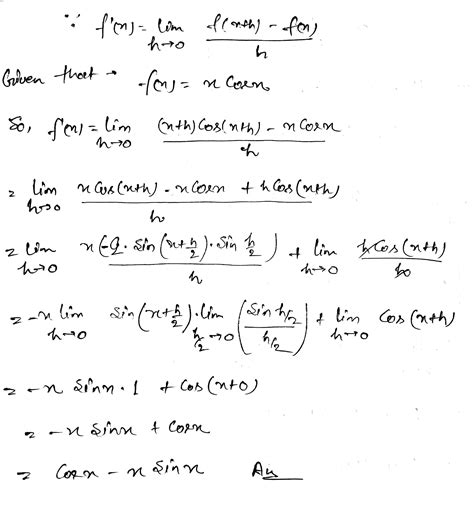 ∵ f'(x) = lim h→0 (f(x+h) - f(x)) / h
Given that → f(x) = x Cosx
So, f'(x) = lim h→0 ((x+h) Cos(x+h) - x Cosx) / h
= lim h→0 (x Cos(x+h) - x Cosx + h Cos(x+h)) / h
= lim h→0 x(-2. Sin(x+h/2). Sin h/2) / h + lim h→0 h Cos(x+h) / h
= -x lim h→0 Sin(x+h/2). lim h/2→0 (Sin h/2 / h/2) + lim h→0 Cos(x+h)
= -x Sinx . 1 + Cos(x+0)
= -x Sinx + Cosx
= Cosx - x Sinx An